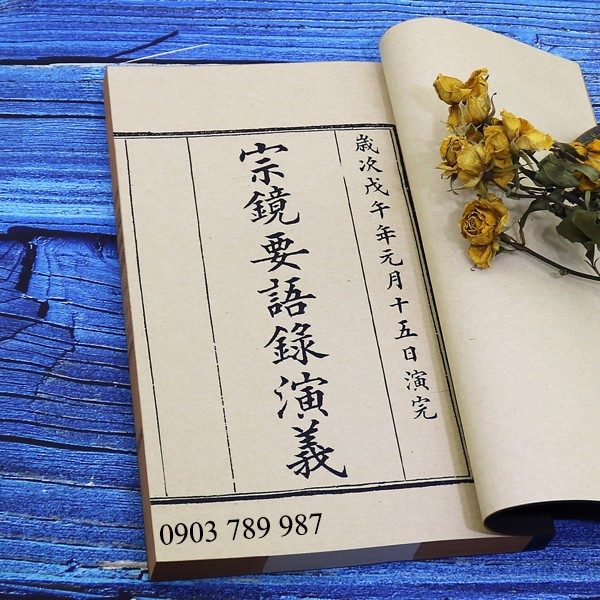 歲次戊午年元月十五日演完
宗鏡要語錄演義
0903 789 987